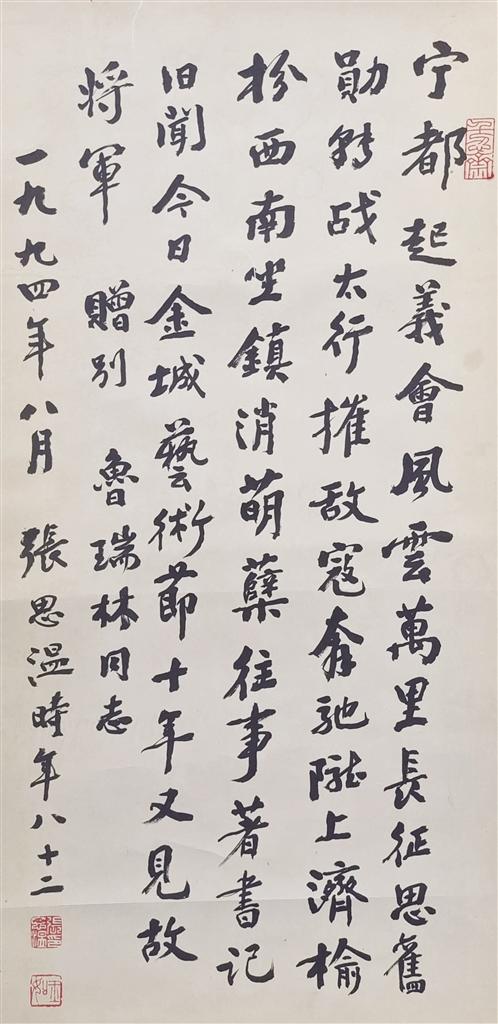 宁都起義會風雲萬里長征思舊
勛轉战太行摧敌寇奔馳隴上濟榆
枌西南坐鎮消萌蘖往事著書记
旧聞今日金城藝術節十年又見故
将軍 贈别 魯瑞林同志
一九九四年八月 張思温時年八十二